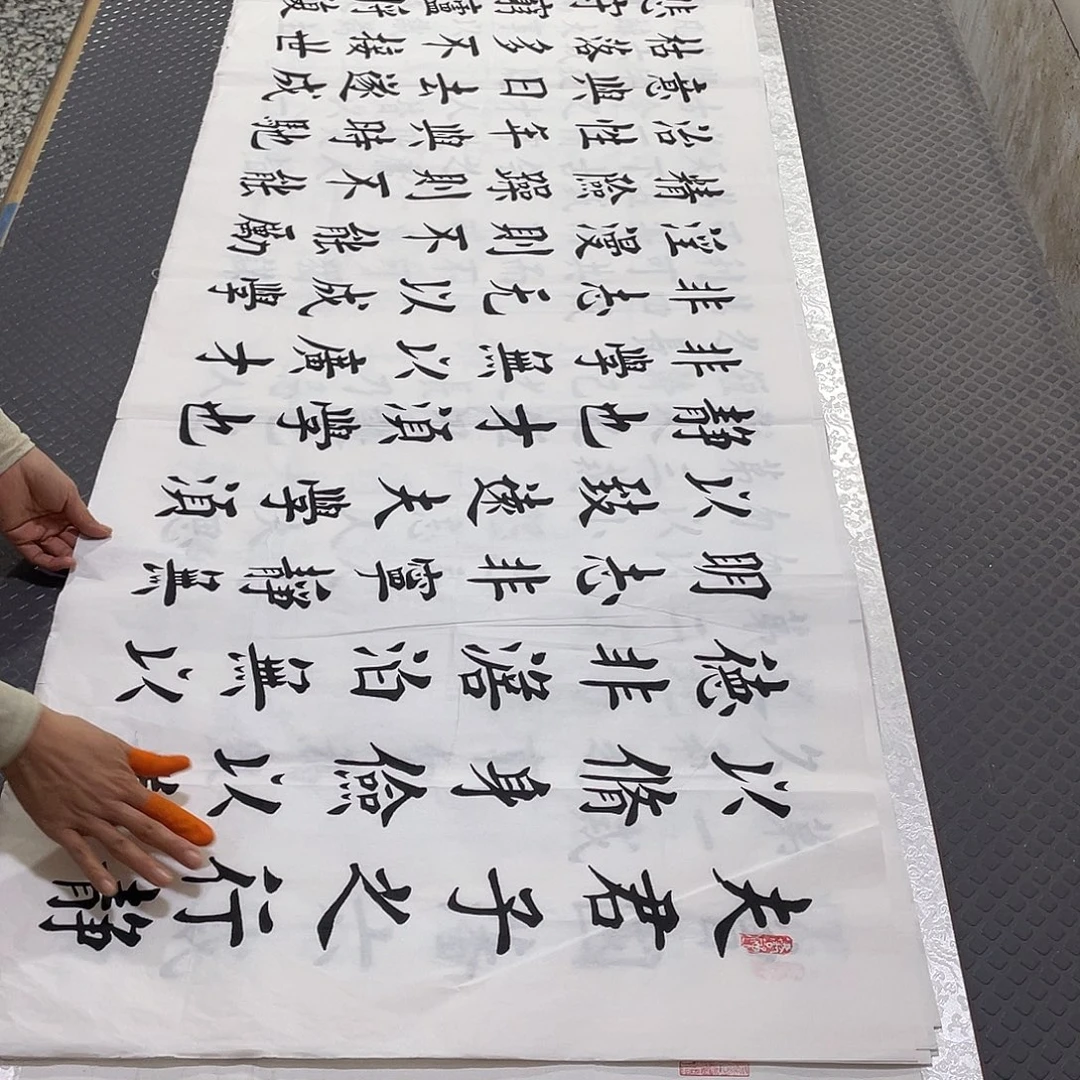 夫君子之行靜
以修身儉以
德非澹泊無以
明志非寧靜無
以致遠夫學須
靜也才須學也
非學無以廣才
非志无以成學
淫慢則不能勵
精險躁則不能
治性年與時馳
意與日去遂成
枯落多不接世
悲守窮廬將復